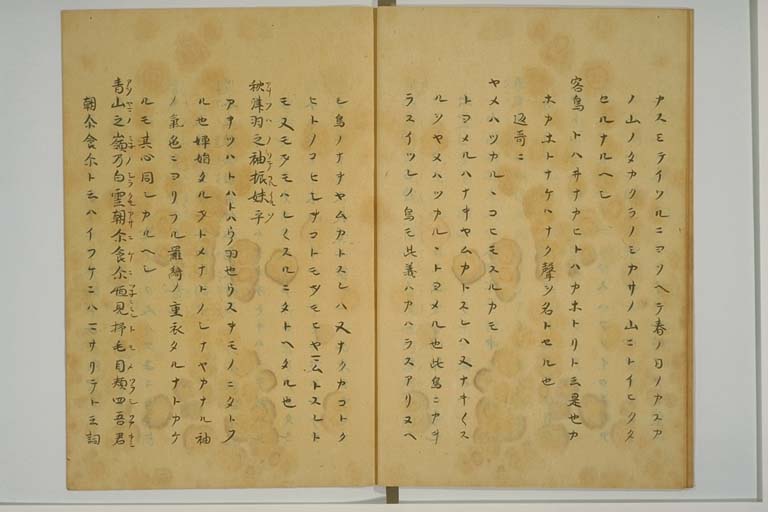 カスミテイツルニヨソヘテ春ノ日ノカスカ
ノ山ノタカクラノミカサノ山ニトイヒクタ
セルナルヘシ
容鳥トハヰナカヒトハカホトリト云是也カ
ホカホトナケハナク聲ヲ名トセル也
返哥ニ
ヤメハツカルヽコヒモスルカモ
トヨメルハナキヤムカトスレハ又ナキ〳〵ス
ルヲヤメハツカルヽトヨメル也此鳥ニカキ
ラスイツレノ鳥モ此義ハカハラスアリヌヘ
シ鳥ノナキヤムカトスレハ又ナクカコトク
ヒトノコヒシサコトモタモヒヤムトスレト
モ又モタモハレ〳〵スルニタトヘタル也
秋津羽之袖振妹乎
アキツハトハトハウ羽也ウスキモノニタトフ
ル也嬋娟タルヲトメナトノシナヤカナル袖
ノ氣色ニヨリフル羅綺ノ重衣タルナトカケ
ルモ其心同シカルヘシ
青山之嶺乃白雲朝尓食尓恒見杼毛目頬四吾君
朝尓食尓ト云ハイフケニハマサリテト云詞